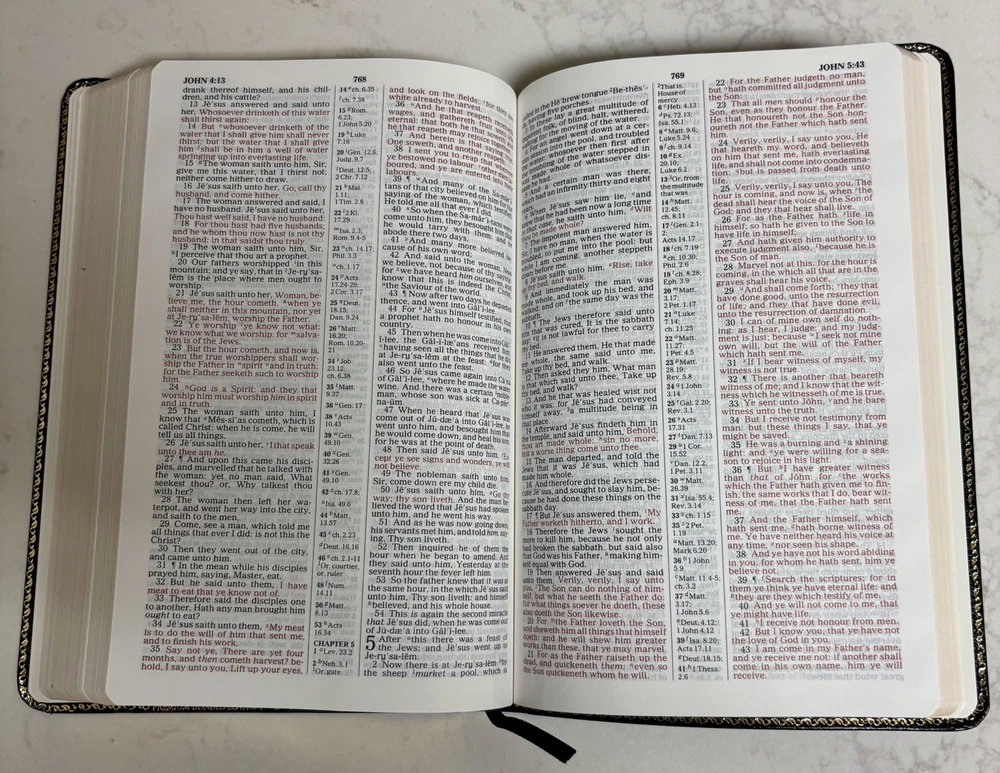 JOHN 4:13
768
drank thereof himself, and his chil-
dren, and his cattle?
13 Jē'sus answered and said unto
her, Whosoever drinketh of this water
shall thirst again:
14 But ᵖwhosoever drinketh of the
water that I shall give him shall never
thirst; but the water that I shall give
him ᑫshall be in him a well of water
springing up into everlasting life.
15 The woman saith unto him, Sir,
give me this water, that I thirst not,
neither come hither to draw.
16 Jē'sus saith unto her, Go, call thy
husband, and come hither.
17 The woman answered and said, I
have no husband. Jē'sus said unto her,
Thou hast well said, I have no husband:
18 For thou hast had five husbands;
and he whom thou now hast is not thy
husband: in that saidst thou truly.
19 The woman saith unto him, Sir,
I perceive that thou art a prophet.
20 Our fathers worshipped in this
mountain; and ye say, that in Je-ru'sa-
lĕm is the place where men ought to
worship.
21 Jē'sus saith unto her, Woman, be-
lieve me, the hour cometh, when ye
shall neither in this mountain, nor yet
at Je-ru'sa-lĕm, worship the Father.
22 Ye worship ye know not what:
we know what we worship: for salva-
tion is of the Jews.
23 But the hour cometh, and now is,
when the true worshippers shall wor-
ship the Father in spirit and in truth:
for the Father seeketh such to worship
him.
24 God is a Spirit: and they that
worship him must worship him in spirit
and in truth.
25 The woman saith unto him, I
know that Mĕs-sī'as cometh, which is
called Christ: when he is come, he will
tell us all things.
26 Jē'sus saith unto her, I that speak
unto thee am he.
27 ¶ And upon this came his disci-
ples, and marvelled that he talked with
the woman: yet no man said, What
seekest thou? or, Why talkest thou
with her?
28 The woman then left her wa-
terpot, and went her way into the city,
and saith to the men,
29 Come, see a man, which told me
all things that ever I did: is not this the
Christ?
30 Then they went out of the city,
and came unto him.
31 ¶ In the mean while his disciples
prayed him, saying, Master, eat.
32 But he said unto them, I have
meat to eat that ye know not of.
33 Therefore said the disciples one
to another, Hath any man brought him
ought to eat?
34 Jē'sus saith unto them, My meat
is to do the will of him that sent me,
and to finish his work.
35 Say not ye, There are yet four
months, and then cometh harvest? be-
hold, I say unto you, Lift up your eyes,
14 ch. 6.35
ch. 7.38
15 Rom.
6.23;
1 John 5.20
19 Luke
7.16
20 Gen. 12.6;
Judg. 9.7
Deut. 12.5;
2 Chr. 7.12
21 Mal.
1.11;
1 Tim. 2.8
22 2 Ki.
17.29
Isa. 2.3;
Rom. 9.4-5
23 ch. 14.17;
Phil. 3.3
ch. 1.17
24 Acts
17.24-29;
2 Cor. 3.17
25 Deut.
18.15;
Dan. 9.24
26 Matt.
16.20;
Rom. 10.20-
21
34 Job
23.12;
ch. 6.38
35 Matt.
9.37
36 Gen. 17
38 Acts
10.43
39 Gen.
49.10
40 Gen.
32.26
41 Gen.
49.10
42 ch. 17.8;
Isa. 49.6
44 Matt.
13.57
45 ch. 2.23
Deut. 16.16
46 ch. 2.1-11
Or, courtier,
or, ruler
48 Num.
14.11
50 Matt.
8.13
53 Acts
16.34
CHAPTER 5
1 Lev. 23.2
2 Neh. 3.1
Or, gate
and look on the fields; for they
white already to harvest.
36 And he that reapeth receiveth
wages, and gathereth fruit unto life
eternal: that both he that soweth and
he that reapeth may rejoice together.
37 And herein is that saying true,
One soweth, and another reapeth.
38 I sent you to reap that whereon
ye bestowed no labour: other men la-
boured, and ye are entered into their
labours.
39 ¶ And many of the Sa-măr'i-
tans of that city believed on him for the
saying of the woman, which testified,
He told me all that ever I did.
40 So when the Sa-măr'i-tans were
come unto him, they besought him that
he would tarry with them: and he
abode there two days.
41 And many more believed be-
cause of his own word;
42 And said unto the woman, Now
we believe, not because of thy saying:
for we have heard him ourselves, and
know that this is indeed the Christ,
the Saviour of the world.
43 ¶ Now after two days he departed
thence, and went into Găl'i-lee.
44 For Jē'sus himself testified, that
a prophet hath no honour in his own
country.
45 Then when he was come into Găl'i-
lee, the Găl-i-læ'ans received him,
having seen all the things that he did
at Je-ru'sa-lĕm at the feast: for they
also went unto the feast.
46 So Jē'sus came again into Cā'na
of Găl'i-lee, where he made the water
wine. And there was a certain noble-
man, whose son was sick at Ca-pĕr'-
na-ŭm.
47 When he heard that Jē'sus was
come out of Jū-dæ'a into Găl'i-lee, he
went unto him, and besought him that
he would come down, and heal his son:
for he was at the point of death.
48 Then said Jē'sus unto him, Ex-
cept ye see signs and wonders, ye will
not believe.
49 The nobleman saith unto him,
Sir, come down ere my child die.
50 Jē'sus saith unto him, Go thy
way; thy son liveth. And the man be-
lieved the word that Jē'sus had spoken
unto him, and he went his way.
51 And as he was now going down,
his servants met him, and told him, say-
ing, Thy son liveth.
52 Then inquired he of them the
hour when he began to amend. And
they said unto him, Yesterday at the
seventh hour the fever left him.
53 So the father knew that it was at
the same hour, in the which Jē'sus said
unto him, Thy son liveth: and himself
believed, and his whole house.
54 This is again the second miracle
that Jē'sus did, when he was come out
of Jū-dæ'a into Găl'i-lee.
5 After this there was a feast of
the Jews; and Jē'sus went up to
Je-ru'sa-lĕm.
2 Now there is at Je-ru'sa-lĕm by
the sheep market a pool, which is
769
JOHN 5:43
in the Hē'brew tongue Be-thĕs'-
five porches.
these lay a great multitude of
folk, of blind, halt, withered,
for the moving of the water.
an angel went down at a cer-
into the pool, and troubled
water: whosoever then first after
the troubling of the water stepped in
made whole of whatsoever dis-
he had.
And a certain man was there,
which had an infirmity thirty and eight
When Jē'sus saw him lie, and
that he had been now a long time
case, he saith unto him, Wilt
be made whole?
The impotent man answered him,
Sir, I have no man, when the water is
troubled, to put me into the pool: but
while I am coming, another steppeth
down before me.
Jē'sus saith unto him, Rise, take
up thy bed, and walk.
And immediately the man was
made whole, and took up his bed, and
walked: and on the same day was the
10 ¶ The Jews therefore said unto
him that was cured, It is the sabbath
day: it is not lawful for thee to carry
thy bed.
11 He answered them, He that made
me whole, the same said unto me,
Take up thy bed, and walk.
12 Then asked they him, What man
is that which said unto thee, Take up
thy bed, and walk?
13 And he that was healed wist not
who it was: for Jē'sus had conveyed
himself away, a multitude being in
that place.
14 Afterward Jē'sus findeth him in
the temple, and said unto him, Behold,
thou art made whole: sin no more,
lest a worse thing come unto thee.
15 The man departed, and told the
Jews that it was Jē'sus, which had
made him whole.
16 And therefore did the Jews perse-
cute Jē'sus, and sought to slay him, be-
cause he had done these things on the
sabbath day.
17 ¶ But Jē'sus answered them, My
Father worketh hitherto, and I work.
18 Therefore the Jews sought the
more to kill him, because he not only
had broken the sabbath, but said also
that God was his Father, making him-
self equal with God.
19 Then answered Jē'sus and said
unto them, Verily, verily, I say unto
you, The Son can do nothing of him-
self, but what he seeth the Father do:
for what things soever he doeth, these
also doeth the Son likewise.
20 For the Father loveth the Son,
and sheweth him all things that himself
doeth: and he will shew him greater
works than these, that ye may marvel.
21 For as the Father raiseth up the
dead, and quickeneth them; even so
the Son quickeneth whom he will.
That is,
House of
mercy
6 Heb. 4.13
Ps. 72.13;
Isa. 55.1
8 Matt. 9.6;
Luke 5.24
9 ch. 9.14
10 Ex.
20.10;
Luke 6.2
13 Or, from
the multitude
that was
14 Matt.
12.45;
ch. 8.11
17 Gen. 2.1-
2;
Acts 14.17
18 ch. 7.19
ch. 10.30;
Phil. 2.6
19 ch. 8.28;
Eph. 3.9
20 Matt.
3.17;
2 Pet. 1.17
21 Luke
7.14;
ch. 11.25
22 Matt.
11.27;
1 Pet. 4.5
23 Matt.
28.19;
Rev. 5.8
24 1 John
3.14
25 Gal. 2.20
Rev. 3.1
26 Acts
17.31
27 Dan. 7.13
29 1 Cor.
15.52
Dan. 12.2
1 Pet. 3.11
30 Matt.
26.39
31 Isa. 55.4;
Rev. 3.14
33 ch. 1.15
35 2 Pet.
1.19
Matt. 13.20;
Mark 6.20
36 1 John
5.9
Matt. 11.4-5;
ch. 3.2
37 Matt.
3.17;
1 John 5.6
Deut. 4.12;
1 John 4.12
39 Isa. 8.20;
Acts 17.11
Deut. 18.15;
41 1 Thess.
2.6
22 For the Father judgeth no man,
but hath committed all judgment unto
the Son:
23 That all men should honour the
Son, even as they honour the Father.
He that honoureth not the Son hon-
oureth not the Father which hath sent
him.
24 Verily, verily, I say unto you, He
that heareth my word, and believeth
on him that sent me, hath everlasting
life, and shall not come into condemna-
tion; but is passed from death unto
life.
25 Verily, verily, I say unto you, The
hour is coming, and now is, when the
dead shall hear the voice of the Son of
God: and they that hear shall live.
26 For as the Father hath life in
himself; so hath he given to the Son to
have life in himself;
27 And hath given him authority to
execute judgment also, because he is
the Son of man.
28 Marvel not at this: for the hour is
coming, in the which all that are in the
graves shall hear his voice,
29 And shall come forth; they that
have done good, unto the resurrection
of life; and they that have done evil,
unto the resurrection of damnation.
30 I can of mine own self do noth-
ing: as I hear, I judge: and my judg-
ment is just; because I seek not mine
own will, but the will of the Father
which hath sent me.
31 If I bear witness of myself, my
witness is not true.
32 ¶ There is another that beareth
witness of me; and I know that the wit-
ness which he witnesseth of me is true.
33 Ye sent unto Jŏhn, and he bare
witness unto the truth.
34 But I receive not testimony from
man: but these things I say, that ye
might be saved.
35 He was a burning and a shining
light: and ye were willing for a sea-
son to rejoice in his light.
36 ¶ But I have greater witness
than that of Jŏhn: for the works
which the Father hath given me to fin-
ish, the same works that I do, bear wit-
ness of me, that the Father hath sent
me.
37 And the Father himself, which
hath sent me, hath borne witness of
me. Ye have neither heard his voice at
any time, nor seen his shape.
38 And ye have not his word abiding
in you: for whom he hath sent, him ye
believe not.
39 ¶ Search the scriptures; for in
them ye think ye have eternal life: and
they are they which testify of me.
40 And ye will not come to me, that
ye might have life.
41 I receive not honour from men.
42 But I know you, that ye have not
the love of God in you.
43 I am come in my Father's name,
and ye receive me not: if another shall
come in his own name, him ye will
receive.